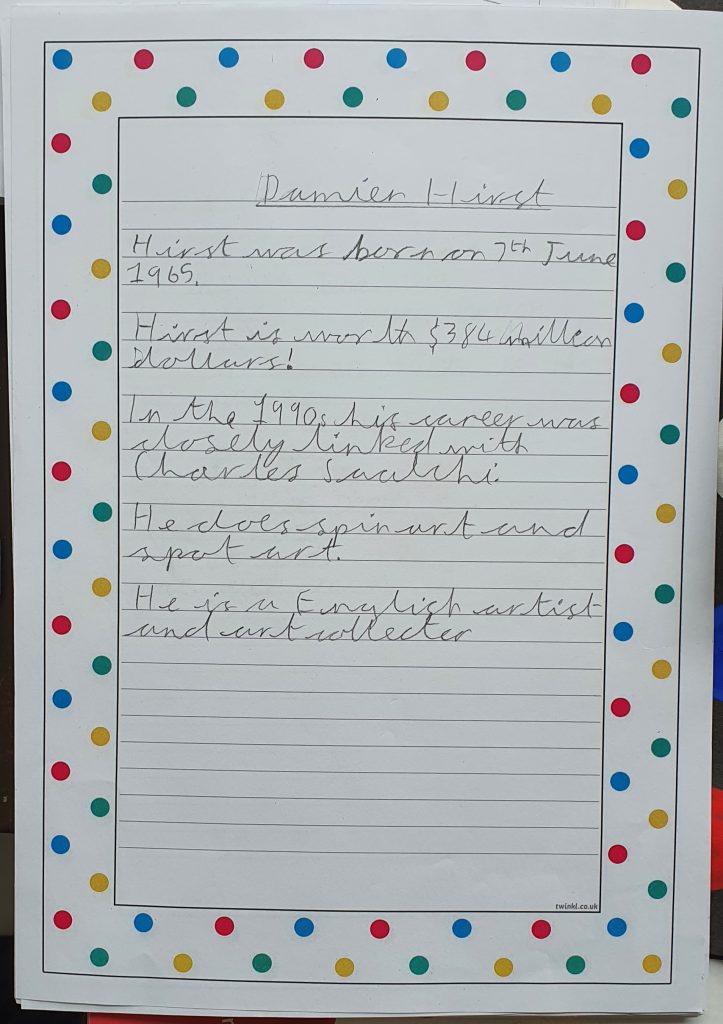 Damien Hirst
Hirst was born on 7th June
1965.
Hirst is worth $384 million
dollars!
In the 1990s his career was
closely linked with
Charles Saatchi.
He does spin art and
spot art.
He is a English artist
and art collecter
twinkl.co.uk